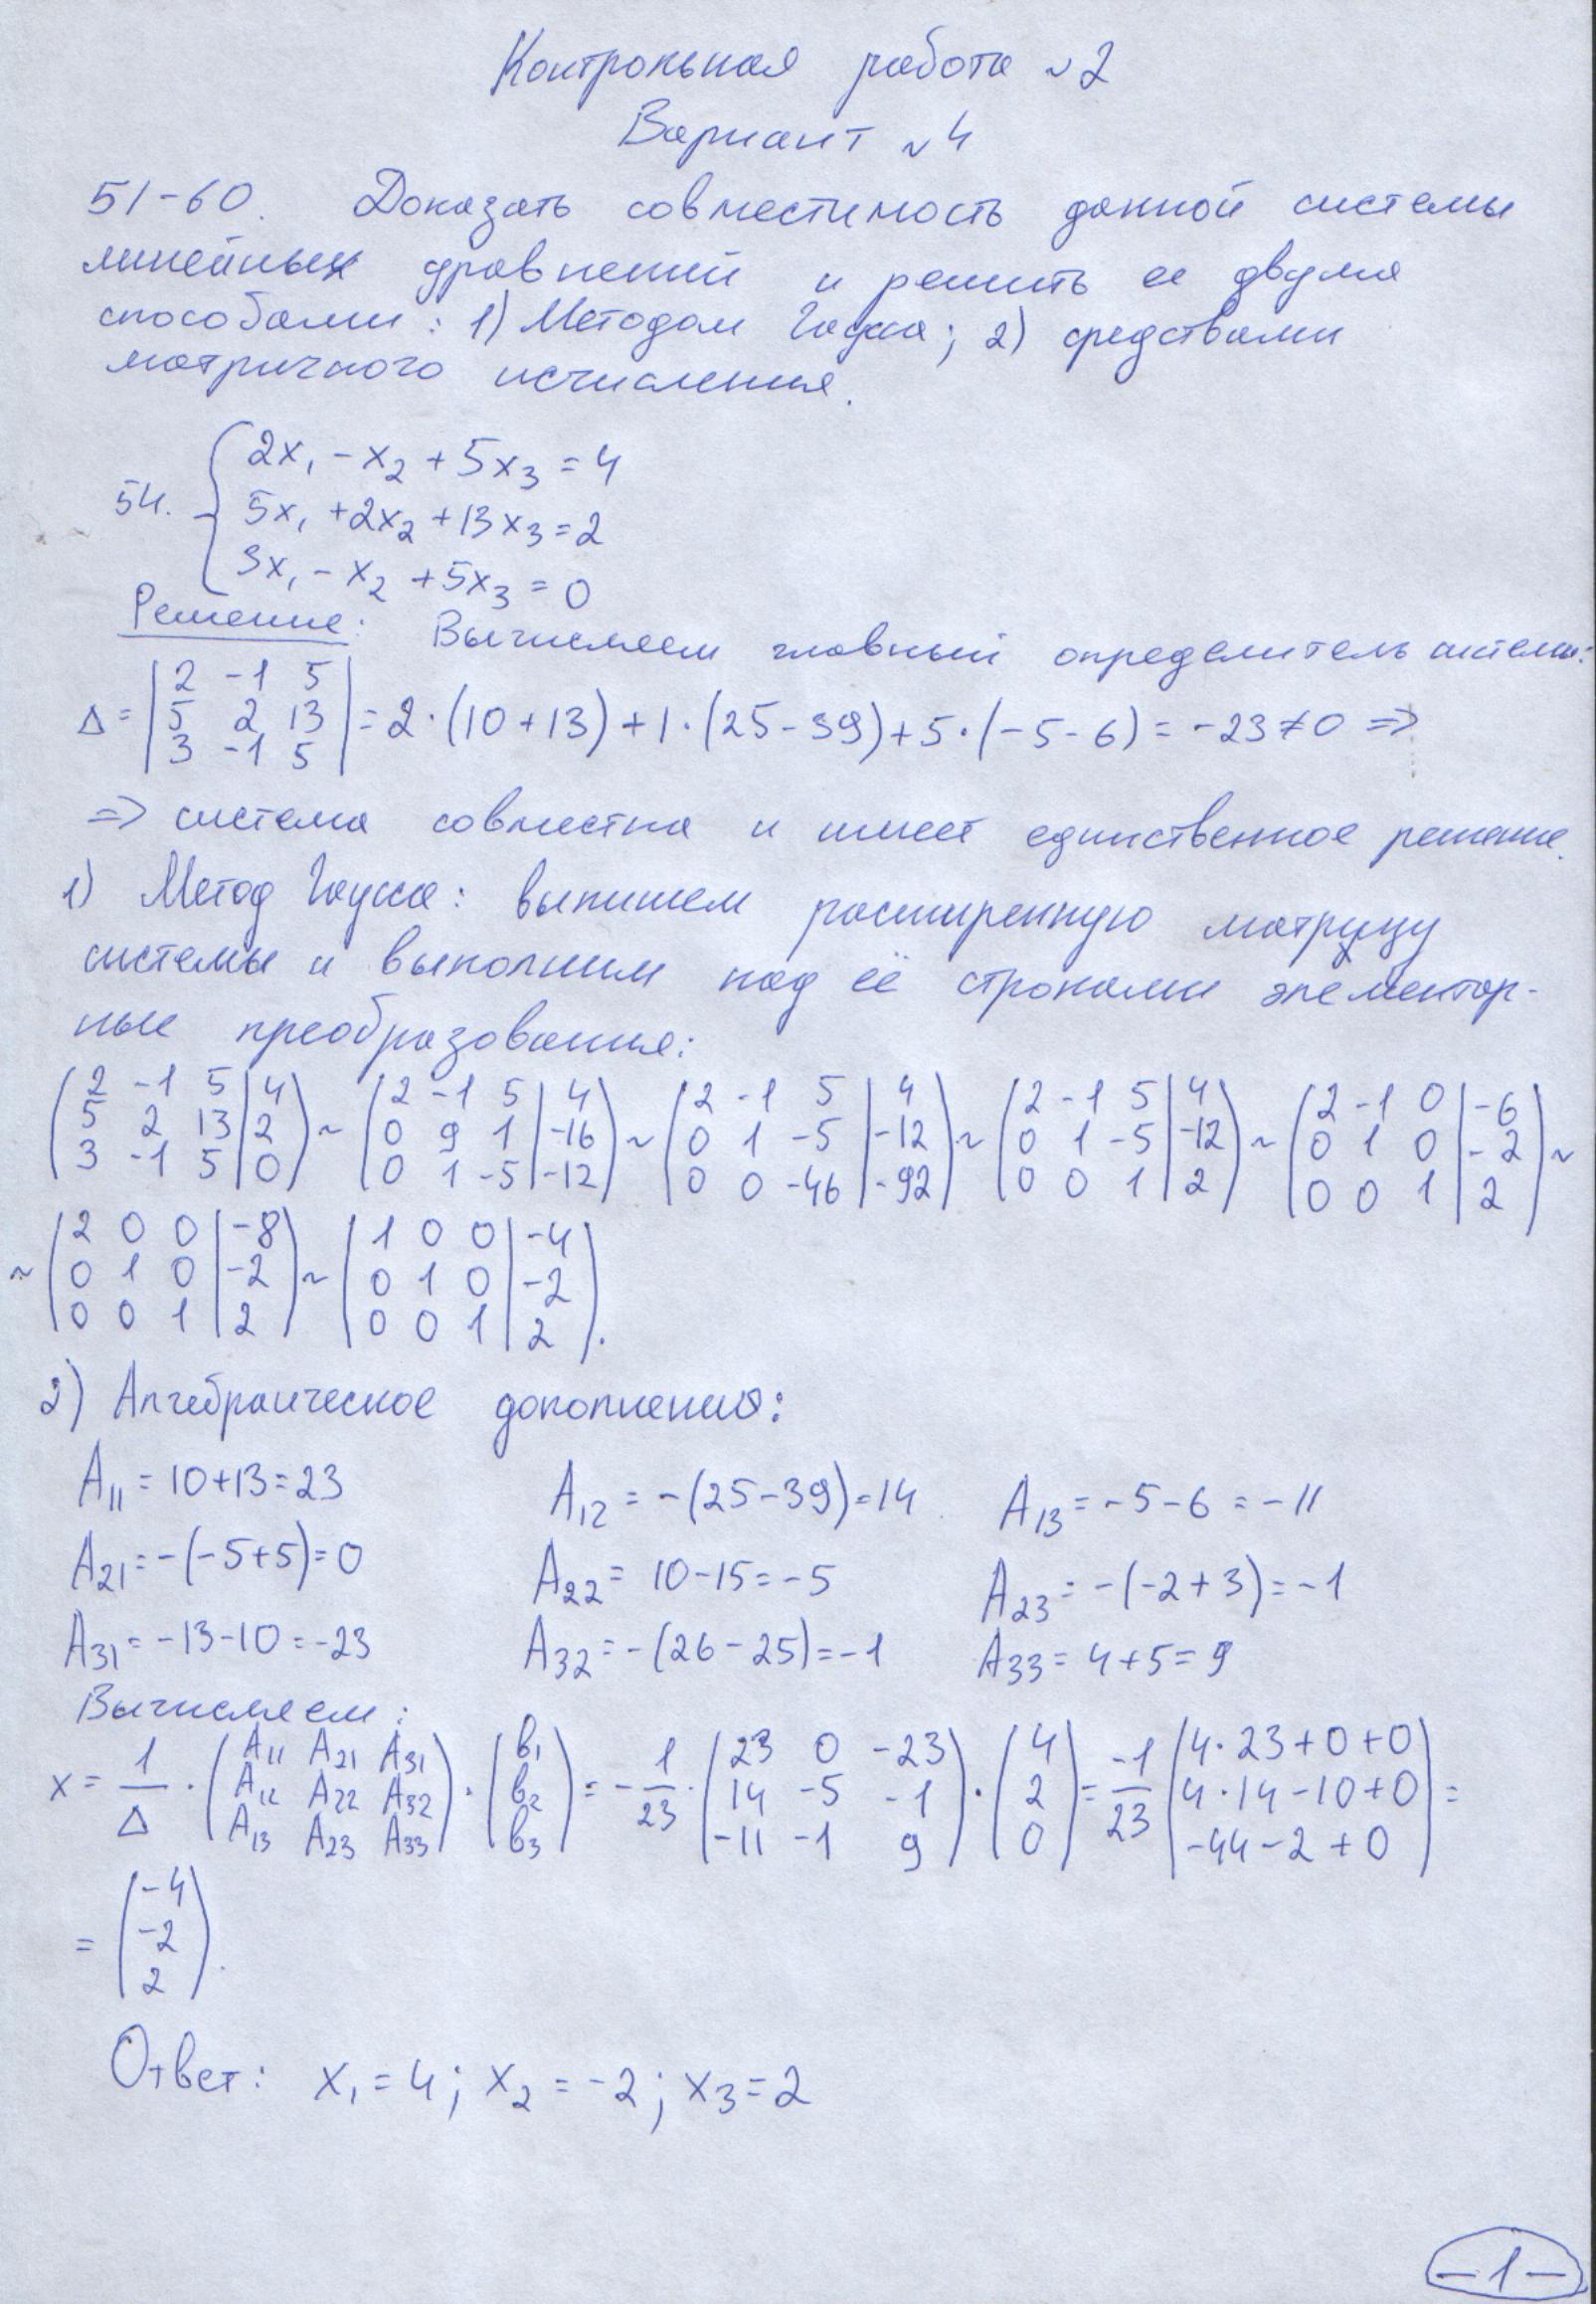 Контрольная работа №2
Вариант №4
51-60. Доказать совместимость данной системы
линейных уравнений и решить ее двумя
способами: 1) Методом Гаусса; 2) средствами
матричного исчисления.
54. { 2x₁ - x₂ + 5x₃ = 4
5x₁ + 2x₂ + 13x₃ = 2
3x₁ - x₂ + 5x₃ = 0
Решение: Вычисляем главный определитель системы:
Δ = |2 -1 5; 5 2 13; 3 -1 5| = 2·(10+13)+1·(25-39)+5·(-5-6) = -23≠0 =>
=> система совместна и имеет единственное решение.
1) Метод Гаусса: выпишем расширенную матрицу
системы и выполним над её строками элементар-
ные преобразования:
(2 -1 5 | 4; 5 2 13 | 2; 3 -1 5 | 0) ~ (2 -1 5 | 4; 0 9 1 | -16; 0 1 -5 | -12) ~ (2 -1 5 | 4; 0 1 -5 | -12; 0 0 -46 | -92) ~ (2 -1 5 | 4; 0 1 -5 | -12; 0 0 1 | 2) ~ (2 -1 0 | -6; 0 1 0 | -2; 0 0 1 | 2) ~
~ (2 0 0 | -8; 0 1 0 | -2; 0 0 1 | 2) ~ (1 0 0 | -4; 0 1 0 | -2; 0 0 1 | 2).
2) Алгебраическое дополнения:
A₁₁ = 10+13=23 A₁₂ = -(25-39)=14 A₁₃ = -5-6 = -11
A₂₁ = -(-5+5)=0 A₂₂ = 10-15=-5 A₂₃ = -(-2+3)=-1
A₃₁ = -13-10=-23 A₃₂ = -(26-25)=-1 A₃₃ = 4+5=9
Вычисляем:
x = 1/Δ · (A₁₁ A₂₁ A₃₁; A₁₂ A₂₂ A₃₂; A₁₃ A₂₃ A₃₃) · (b₁; b₂; b₃) = -1/23 · (23 0 -23; 14 -5 -1; -11 -1 9) · (4; 2; 0) = -1/23 (4·23+0+0; 4·14-10+0; -44-2+0) =
= (-4; -2; 2).
Ответ: x₁ = 4; x₂ = -2; x₃ = 2
-1-